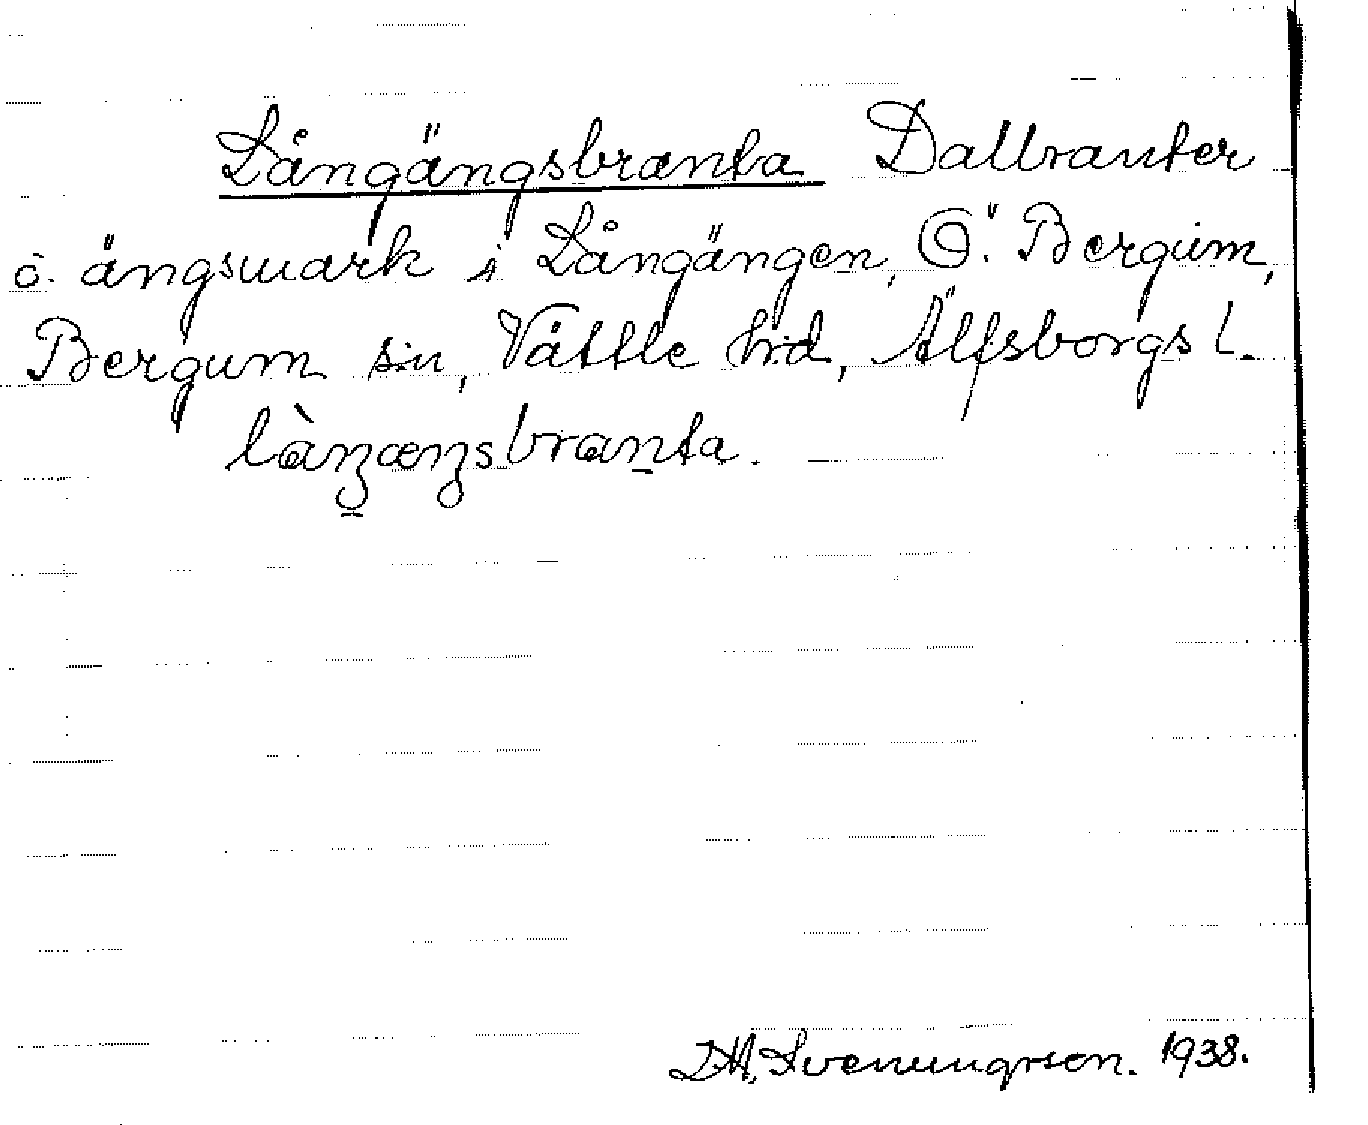 Långängsbranta Dallbranter
o. ängsmark i Långängen, Ö. Bergum,
Bergum sn, Vättle hd, Älfsborgs l.
làŋæŋsbranta.
D.H. Svenungsson. 1938.